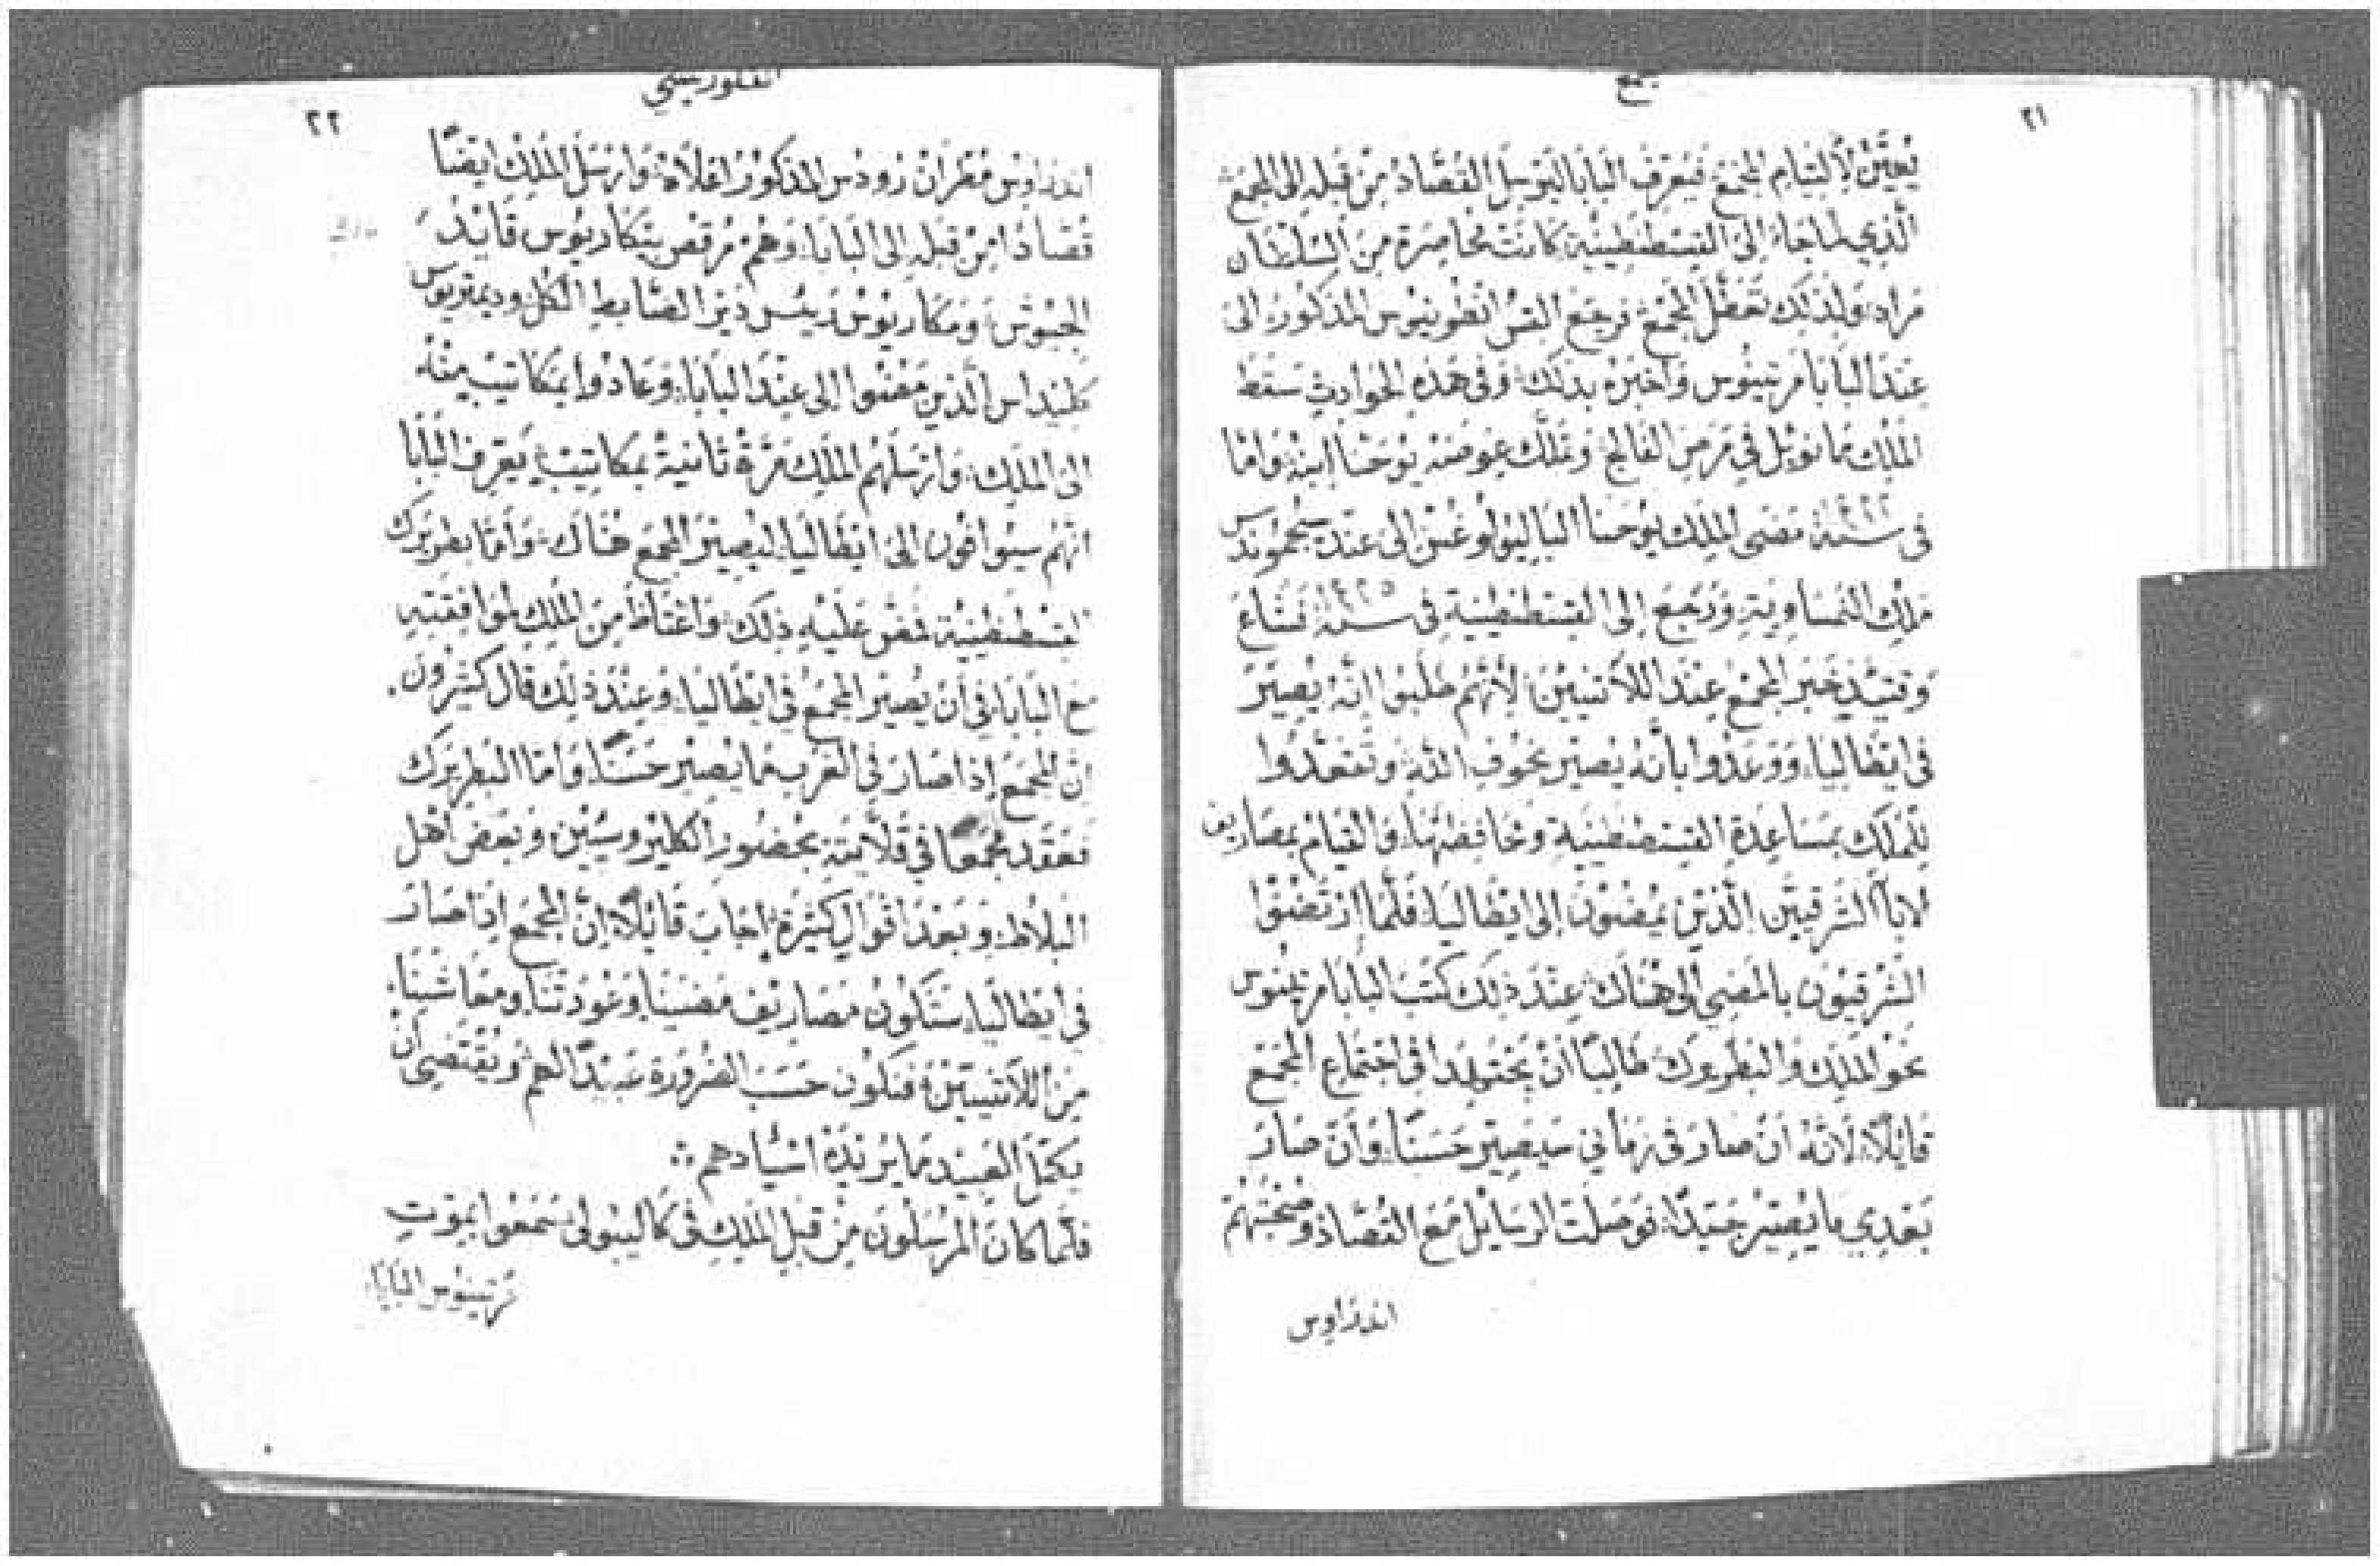 مجمع
٢١
يُعيَّن لإلتيام المجمَع فيعرف البابا ليُوسِل القصّاد من قبله إلى المجمع
الَّذي لما جاء إلى القسطنطينية كانت محاصرة من السلطان
مراد، ولذلك تعطّل المجمع فرجع القس انطونيوس المذكور إلى
عند البابا مرتينوس وأخبره بذلك وفي هذه الحوادث سقط
الملك مانويل في مرض الفالج وتملّك عوضه يوحنا ابنه واما
في سنة مضى الملك يوحنا الباليولوغس الى عند سجموندس
ملك النمساوية ورجع إلى القسطنطينية في سنة فشاع
وقتيذ خبر المجمع عند اللاتينيين لأنهم طلبوا انه يصير
في ايطاليا، ووعدوا بأنه يصير بخوف الله وتعهدوا
للملك بمساعدة القسطنطينية ومحافظتها، والقيام بمصاريف
لابآ الشرقيين الذين يمضون إلى ايطاليا، فلما ارتضوا
الشرقيون بالمضي إلى هناك عند ذلك كتب البابا مرتينوس
نحو الملك والبطريرك طالبًا أن يجتهدا في اجتماع المجمع
قايلًا، لانه ان صار في زماني سيصير حسنًا، وان صار
بعدي ما يصير جيدًا: فوصلت الرسايل مع القصاد وصحبتهم
اندراوس
افلورينتيني
٢٢
اندراوس مطران رودس المذكور اعلاه، وارسل الملك ايضًا
قصّادًا من قبله إلى البابا، وهم مرقص يتكاريوس قايد
الجيوش، ومكاريوس رييس دير الضابط الكل وديمتريوس
كليداس الذين مضوا إلى عند البابا، وعادوا بمكاتيب منه
الى الملك، وارسلهم الملك مرّة ثانية بمكاتيب يعرف البابا
انهم سيوافون إلى ايطاليا ليصير المجمع هناك، وأما بطريرك
القسطنطينية فصعب عليه ذلك واغتاظ من الملك لموافقته
مع البابا، في أن يصير المجمع في ايطاليا، وعند ذلك قال كثيرون
إن المجمع إذا صار في الغرب ما يصير حسنًا، وأما البطريرك
فعقد مجمعًا في قلايته بحضور اكليروسيين وبعض أهل
البلاط، وبعد اقوال كثيرة، اجاب قايلًا، إنّ المجمع إذا صار
في ايطاليا، ستكون مصاريف مضينا وعودتنا، ومعاشنا،
من اللاتينيين، فنكون حسب الضرورة عبيدًا لهم، ويقتضي أن
يكمّل العبيد ما يريده اسيادهم ܀
فلما كان المرسلون من قبل الملك في كاليبولي سمعوا بموت
مرتينوس البابا